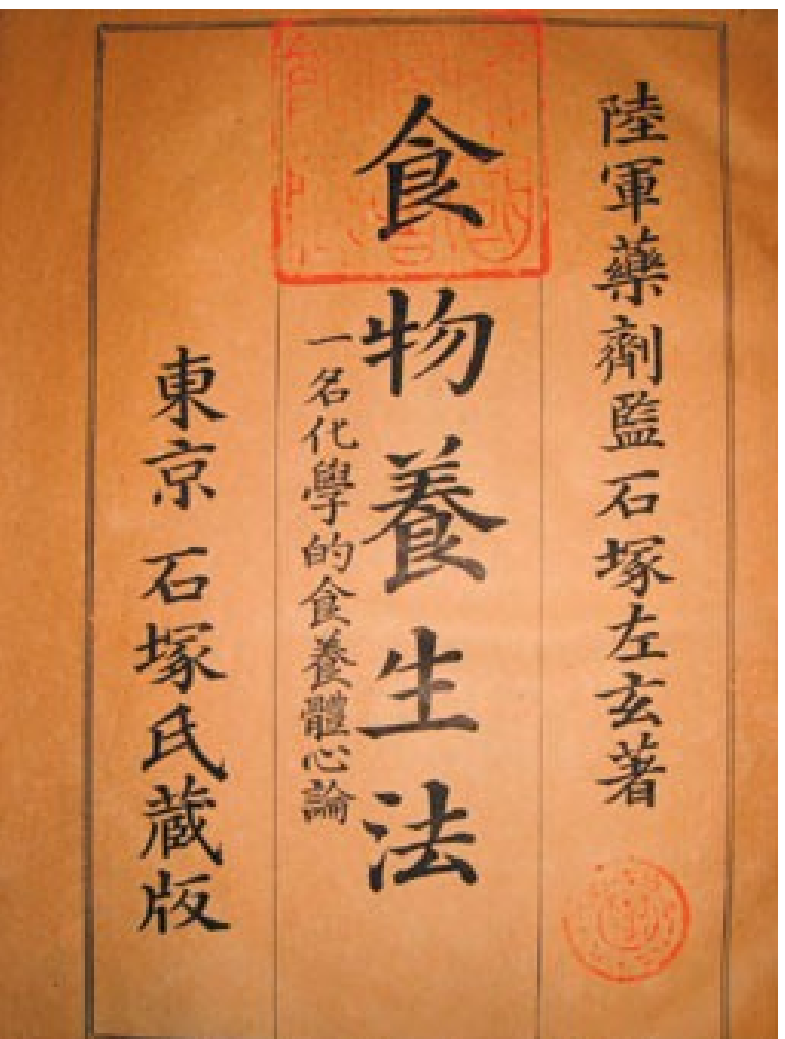 陸軍藥劑監石塚左玄著
食物養生法
一名化學的食養體心論
東京 石塚氏蔵版